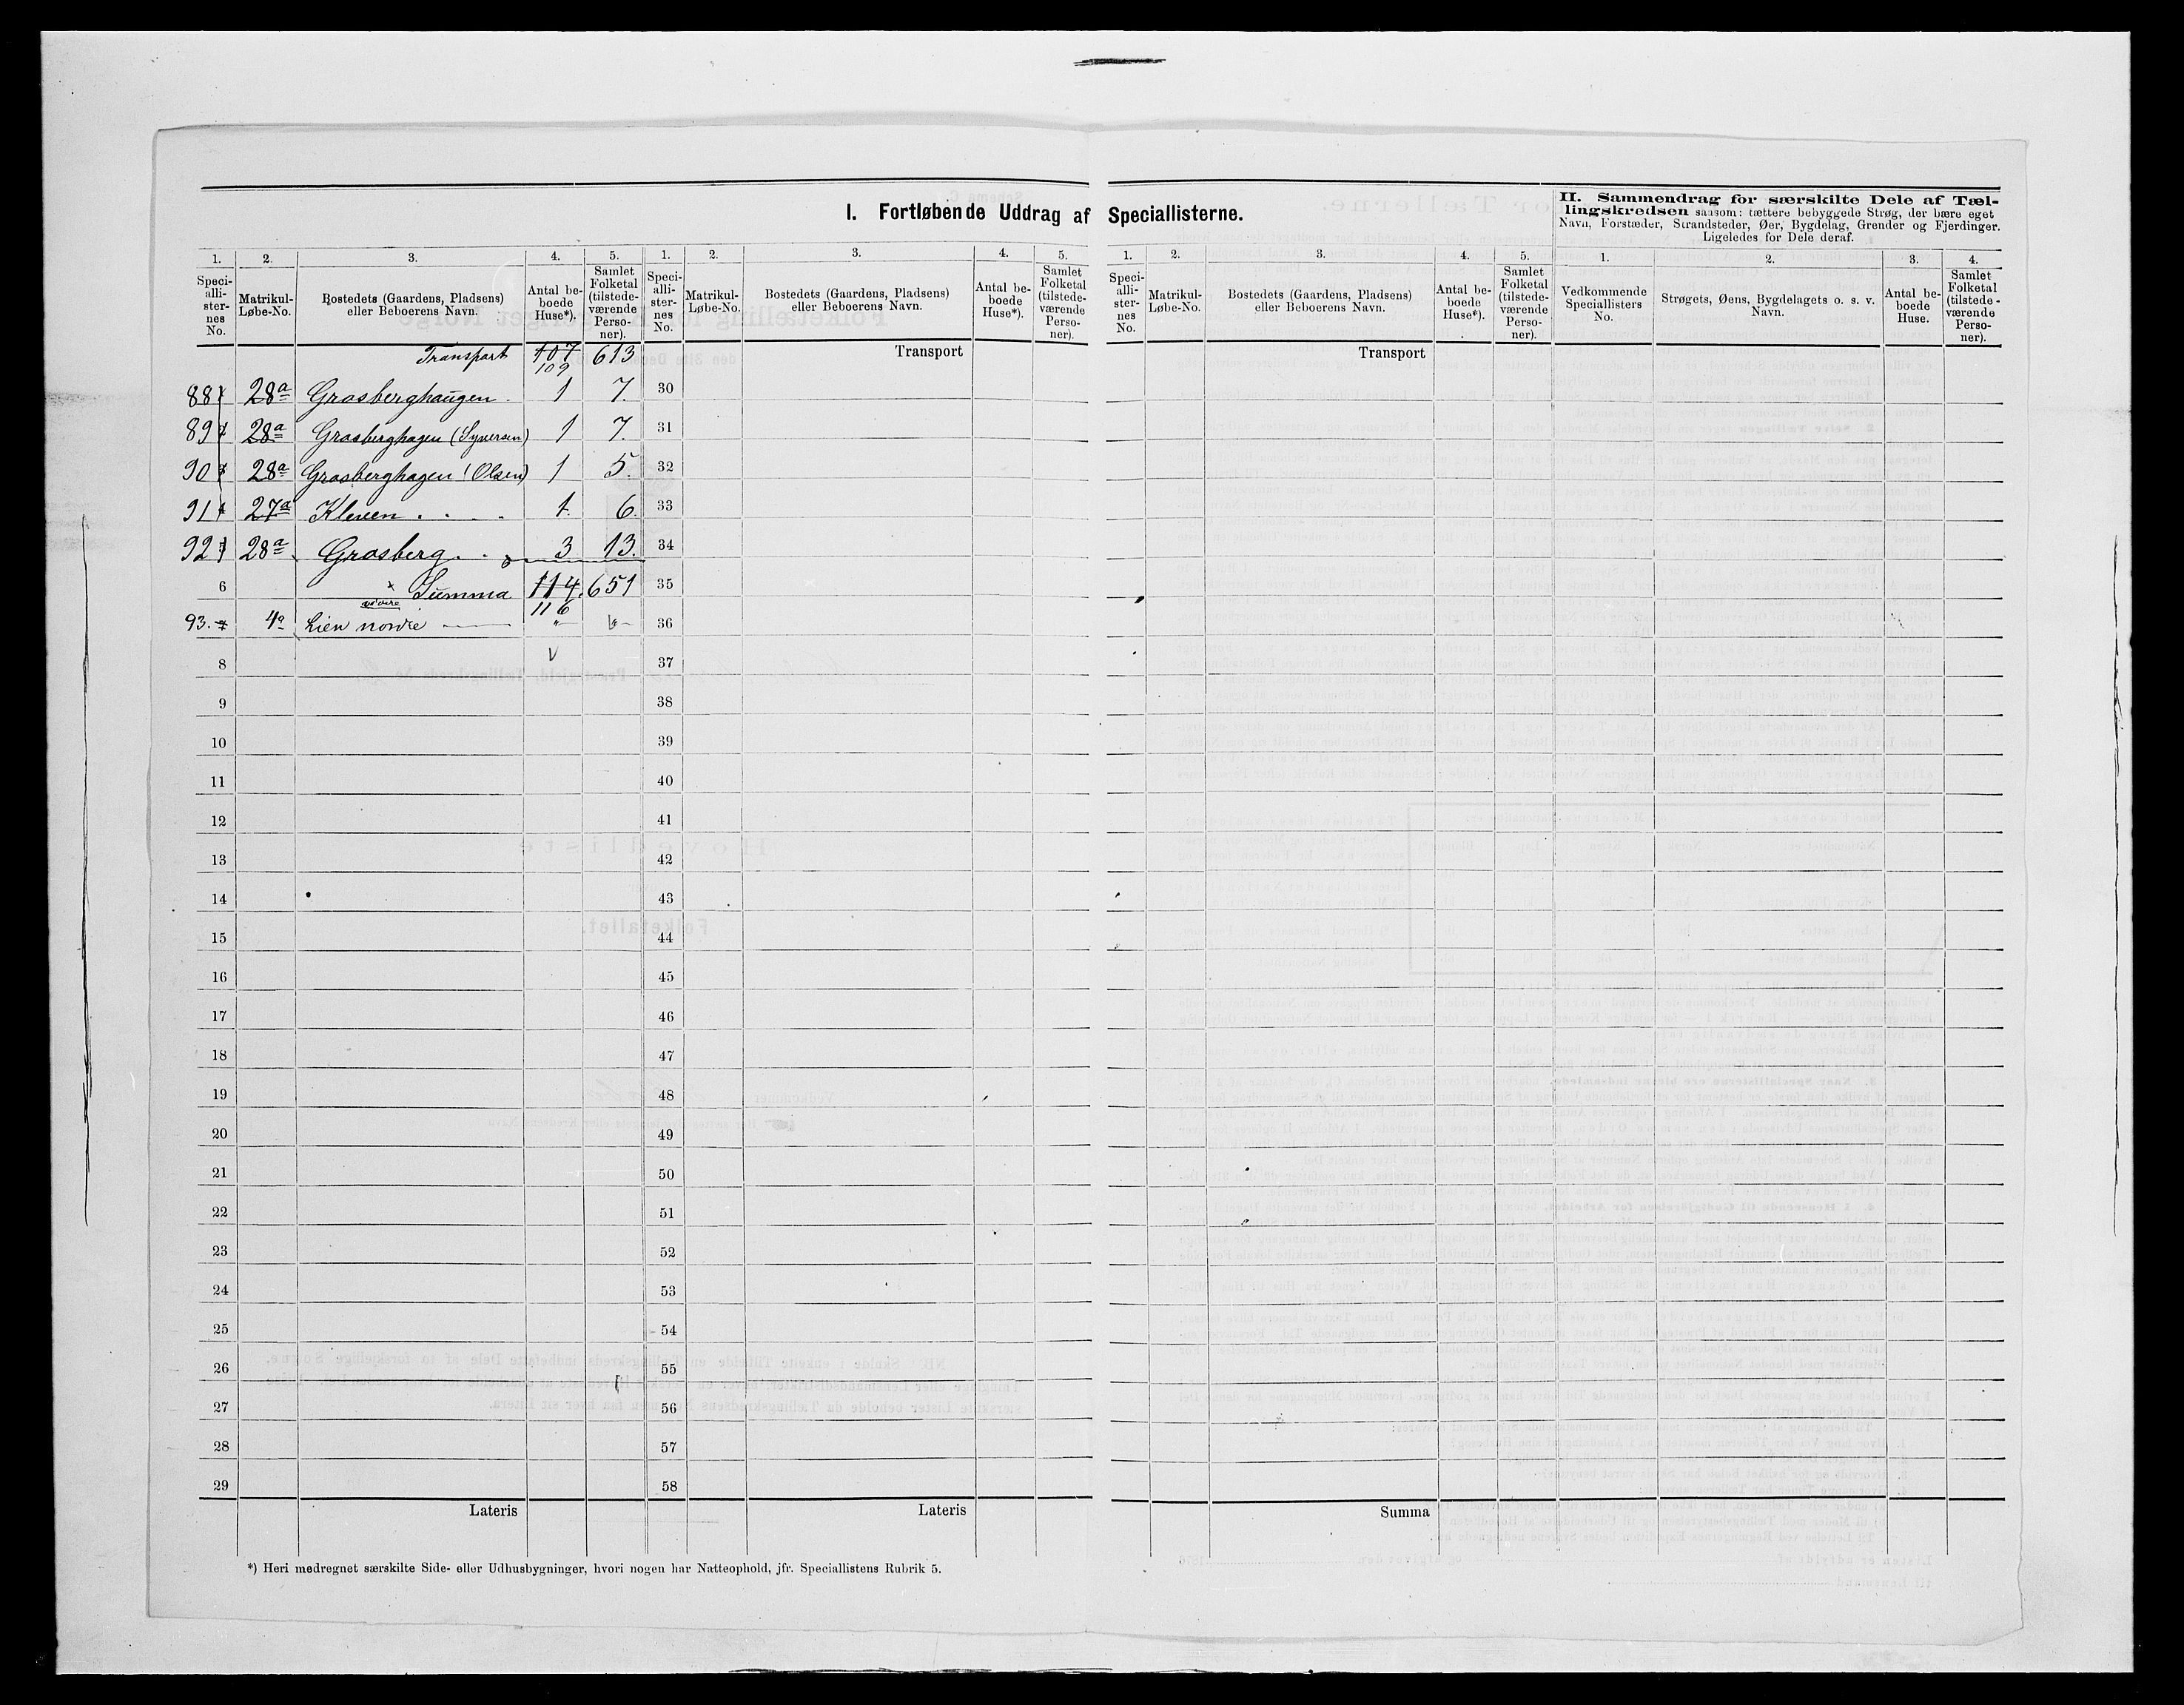 I. Fortløbende Uddrag af Speciallisterne.
II. Sammendrag for særskilte Dele af Tæl-
lingskredsen saasom: tættere bebyggede Strøg, der bære eget
Navn, Forstæder, Strandsteder, Øer, Bygdelag, Grender og Fjerdinger.
Ligeledes for Dele deraf.
1. 2. 3. 4. 5. 1. 2. 3. 4. 5. 1. 2. 3. 4. 5. 1. 2. 3. 4.
Speci-alli-ster-nes No. Matrikul-Løbe-No. Bostedets (Gaardens, Pladsens) eller Beboerens Navn. Antal be-boede Huse*). Samlet Folketal (tilstede-værende Perso-ner).
Speci-alli-ster-nes No. Matrikul-Løbe-No. Bostedets (Gaardens, Pladsens) eller Beboerens Navn. Antal be-boede Huse*). Samlet Folketal (tilstede-værende Perso-ner).
Speci-alli-ster-nes No. Matrikul-Løbe-No. Bostedets (Gaardens, Pladsens) eller Beboerens Navn. Antal be-boede Huse*). Samlet Folketal (tilstede-værende Perso-ner).
Vedkommende Speciallisters No. Strøgets, Øens, Bygdelagets o. s. v. Navn. Antal be-boede Huse. Samlet Folketal (tilstede-værende Perso-ner).
Transport 107 613 Transport Transport
109
88 28a Grosberghaugen. 1 7. 30
89 28a Grasberghagen (Syversen) 1 7. 31
90 28a Grosberghagen (Olsen) 1 5. 32
91 27a Kleven . . . 1. 6. 33
92 28a Grosberg. . 3 13. 34
6 Summa 114. 651 35
116
93. 4a Lien nordre 36
8 37
9 38
10 39
11 40
12 41
13 42
14 43
15 44
16 45
17 46
18 47
19 48
20 49
21 50
22 51
23 52
24 53
25 54
26 55
27 56
28 57
29 58
Lateris Lateris Summa
*) Heri medregnet særskilte Side- eller Udhusbygninger, hvori nogen har Natteophold, jfr. Speciallistens Rubrik 5.